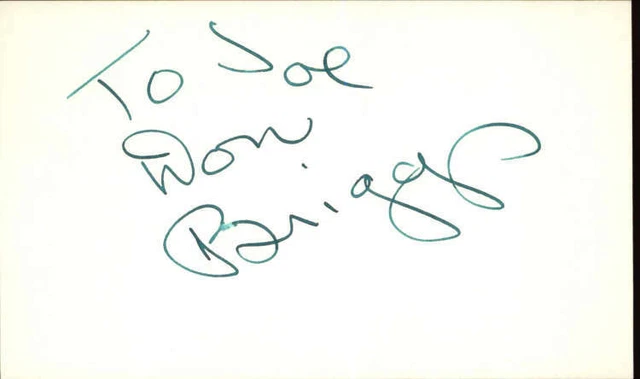 To Joe
Don
Briggs